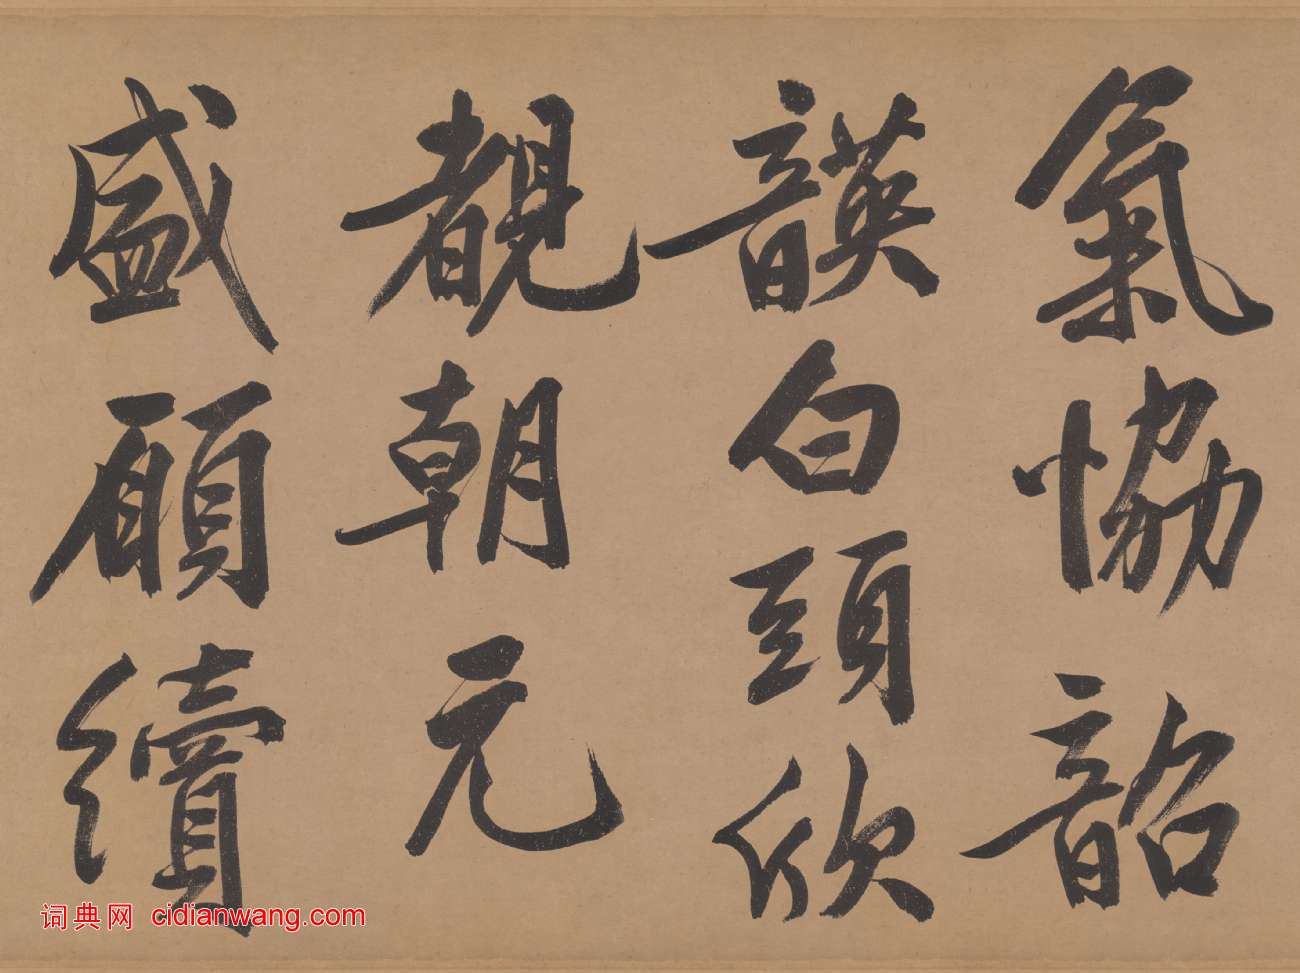 氣協韶
韺白頭欣
覩朝元
盛願續
词典网 cidianwang.com